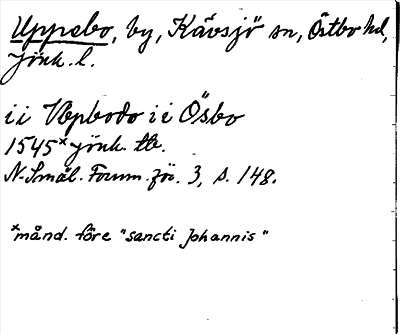 Uppebo, by, Kävsjö sn, Östbo hd,
Jönk. l.
i i Vbpbodo i i Ösbo
1545* Jönk. tb.
N. Smål. Fornm.för. 3, s. 148.
*månd. före "sancti Johannis"